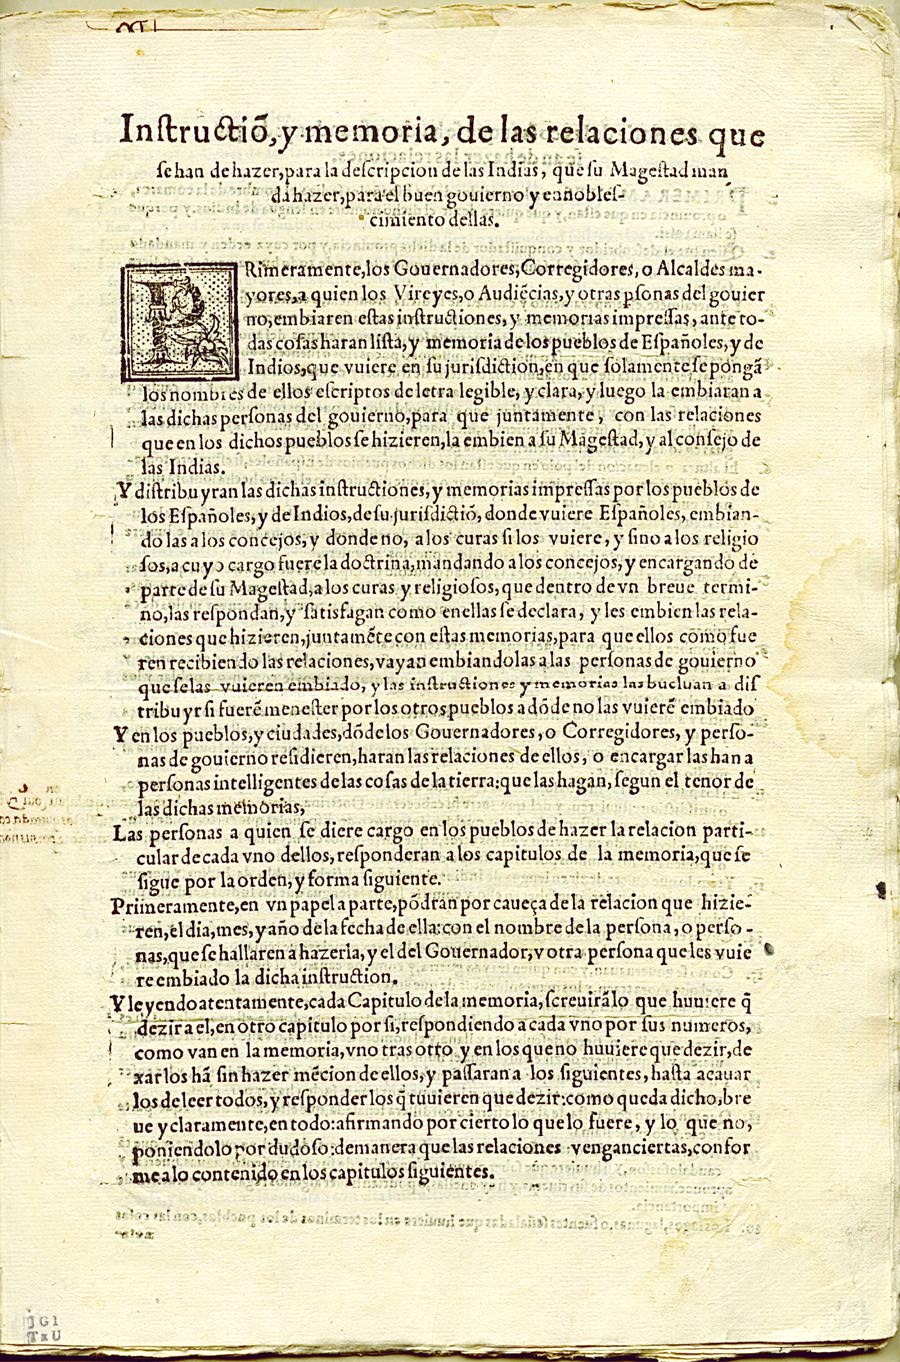 Instructiõ, y memoria, de las relaciones que
se han de hazer, para la descripcion de las Indias, que su Magestad man
da hazer, para el buen gouierno y ennobles-
cimiento dellas.
PRimeramente, los Gouernadores, Corregidores, o Alcaldes ma-
yores, a quien los Vireyes, o Audiẽcias, y otras psonas del gouier
no, embiaren estas instructiones, y memorias impressas, ante to-
das cosas haran lista, y memoria de los pueblos de Españoles, y de
Indios, que vuiere en su jurisdiction, en que solamente se pongã
los nombres de ellos escriptos de letra legible, y clara, y luego la embiaran a
las dichas personas del gouierno, para que juntamente, con las relaciones
que en los dichos pueblos se hizieren, la embien a su Magestad, y al consejo de
las Indias.
Y distribuyran las dichas instructiones, y memorias impressas por los pueblos de
los Españoles, y de Indios, de su jurisdictiõ, donde vuiere Españoles, embian-
do las a los concejos, y donde no, a los curas si los vuiere, y sino a los religio
sos, a cuyo cargo fuere la doctrina, mandando a los concejos, y encargando de
parte de su Magestad, a los curas y religiosos, que dentro de vn breue termi-
no, las respondan, y satisfagan como en ellas se declara, y les embien las rela-
ciones que hizieren, juntamẽte con estas memorias, para que ellos como fue
ren recibiendo las relaciones, vayan embiandolas a las personas de gouierno
que se las vuieren embiado, y las instructiones y memorias las bueluan a dis
tribuyr si fuerẽ menester por los otros pueblos a dõde no las vuierẽ embiado
Y en los pueblos, y ciudades, dõde los Gouernadores, o Corregidores, y perso-
nas de gouierno residieren, haran las relaciones de ellos, o encargar las han a
personas intelligentes de las cosas de la tierra: que las hagan, segun el tenor de
las dichas memorias,
Las personas a quien se diere cargo en los pueblos de hazer la relacion parti-
cular de cada vno dellos, responderan a los capitulos de la memoria, que se
sigue por la orden, y forma siguiente.
Primeramente, en vn papel a parte, põdran por caueça de la relacion que hizie-
ren, el dia, mes, y año de la fecha de ella: con el nombre de la persona, o perso-
nas, que se hallaren a hazerla, y el del Gouernador, v otra persona que les vuie
re embiado la dicha instruction.
Y leyendo atentamente, cada Capitulo de la memoria, screuirãlo que huuiere q̃
dezir a el, en otro capitulo por si, respondiendo a cada vno por sus numeros,
como van en la memoria, vno tras otro y en los que no huuiere que dezir, de
xarlos hã sin hazer mẽcion de ellos, y passaran a los siguientes, hasta acauar
los de leer todos, y responder los q̃ tuuieren que dezir: como queda dicho, bre
ue y claramente, en todo: afirmando por cierto lo que lo fuere, y lo que no,
poniendolo por dudoso: de manera que las relaciones vengan ciertas, confor
me a lo contenido en los capitulos siguientes.
JGI
TxU